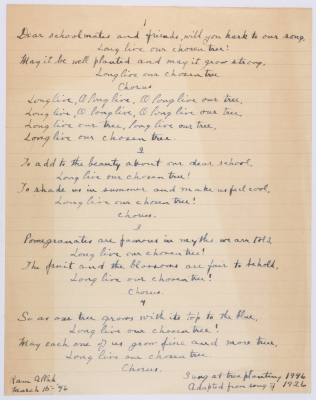 1
Dear schoolmates and friends, will you hark to our song,
Long live our chosen tree!
May it be well planted and may it grow strong,
Long live our chosen tree
Chorus
Long live, O long live, O long live our tree,
Long live, O long live, O long live our tree,
Long live our tree, long live our tree,
Long live our chosen tree.
2
To add to the beauty about our dear school,
Long live our chosen tree!
To shade us in summer and make us feel cool,
Long live our chosen tree!
Chorus.
3
Pomegranates are famous in myths we are told,
Long live our chosen tree!
The fruit and the blossoms are fair to behold,
Long live our chosen tree!
Chorus.
4
So as our tree grows with its top to the blue,
Long live our chosen tree!
May each one of us grow fine and more true,
Long live our chosen tree
Chorus.
March 15 - '46
Sung at tree planting 1946
Adapted from song of 1926